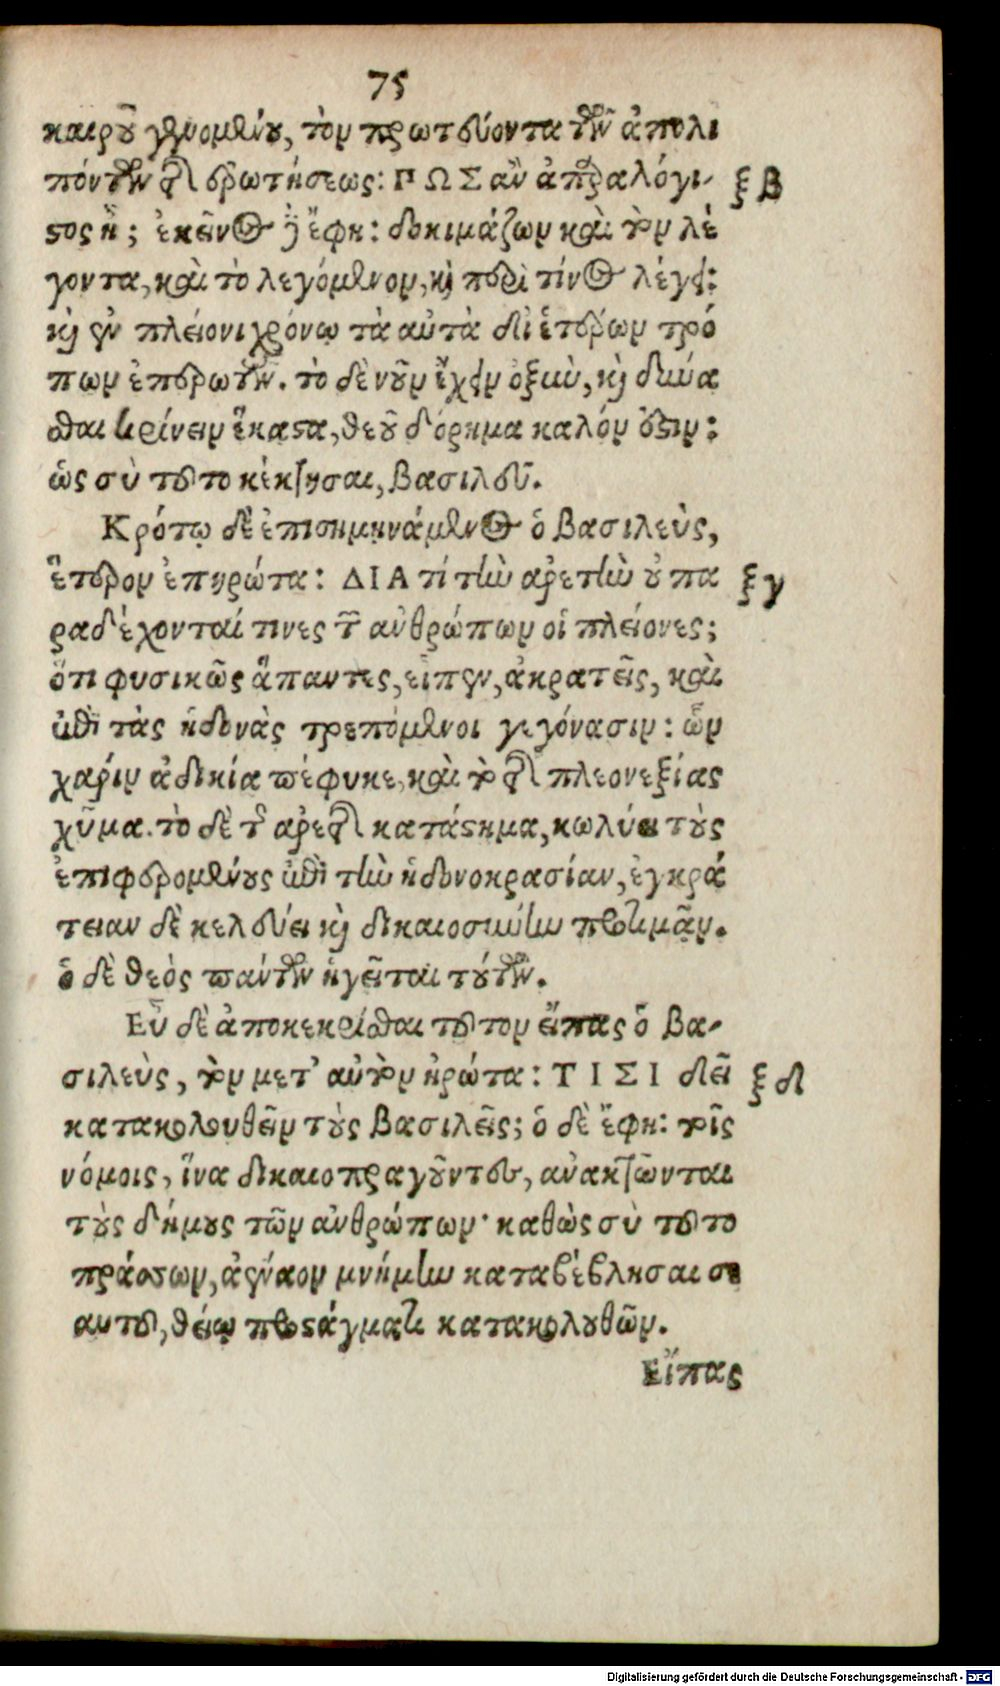 75
καιροῦ γενομένου, τὸν πρωτεύοντα τῶν ἀπολι
πόντων τῆς ἐρωτήσεως: ΠΩΣ ἂν ἀπαραλόγι-
στος ἦ; ἐκεῖνος δὲ ἔφη: δοκιμάζων καὶ τὸν λέ
γοντα, καὶ τὸ λεγόμενον, καὶ περὶ τίνος λέγει:
καὶ ἐν πλείονι χρόνῳ τὰ αὐτὰ δι' ἑτέρων τρό
πων ἐπερωτῶν. τὸ δὲ νοῦν ἔχειν ὀξὺν, καὶ δύνα
σθαι κρίνειν ἕκαστα, θεοῦ δώρημα καλόν ἐστιν:
ὡς σὺ τοῦτο κέκτησαι, βασιλεῦ.
Κρότῳ δὲ ἐπισημηνάμενος ὁ βασιλεὺς,
ἕτερον ἐπηρώτα: ΔΙΑ τί τὴν ἀρετὴν οὐ πα
ραδέχονταί τινες τῶν ἀνθρώπων οἱ πλείονες;
ὅτι φυσικῶς ἅπαντες, εἶπεν, ἀκρατεῖς, καὶ
ἐπὶ τὰς ἡδονὰς τρεπόμενοι γεγόνασιν: ὧν
χάριν ἀδικία πέφυκε, καὶ τὸ τῆς πλεονεξίας
χῦμα. τὸ δὲ τῆς ἀρετῆς κατάστημα, κωλύει τοὺς
ἐπιφερομένους ἐπὶ τὴν ἡδονοκρασίαν, ἐγκρά
τειαν δὲ κελεύει καὶ δικαιοσύνην προτιμᾶν.
ὁ δὲ θεὸς πάντων ἡγεῖται τούτων.
Εὖ δὲ ἀποκεκρίσθαι τοῦτον εἴπας ὁ βα-
σιλεὺς, τὸν μετ' αὐτὸν ἠρώτα: ΤΙΣΙ δεῖ
κατακολουθεῖν τοὺς βασιλεῖς; ὁ δὲ ἔφη: τοῖς
νόμοις, ἵνα δικαιοπραγοῦντες, ἀνακτῶνται
τοὺς δήμους τῶν ἀνθρώπων· καθὼς σὺ τοῦτο
πράσσων, ἀέναον μνήμην καταβέβλησαι σε
αυτοῦ, θείῳ προστάγματι κατακολουθῶν.
Εἴπας
ξβ
ξγ
ξδ
Digitalisierung gefördert durch die Deutsche Forschungsgemeinschaft - DFG